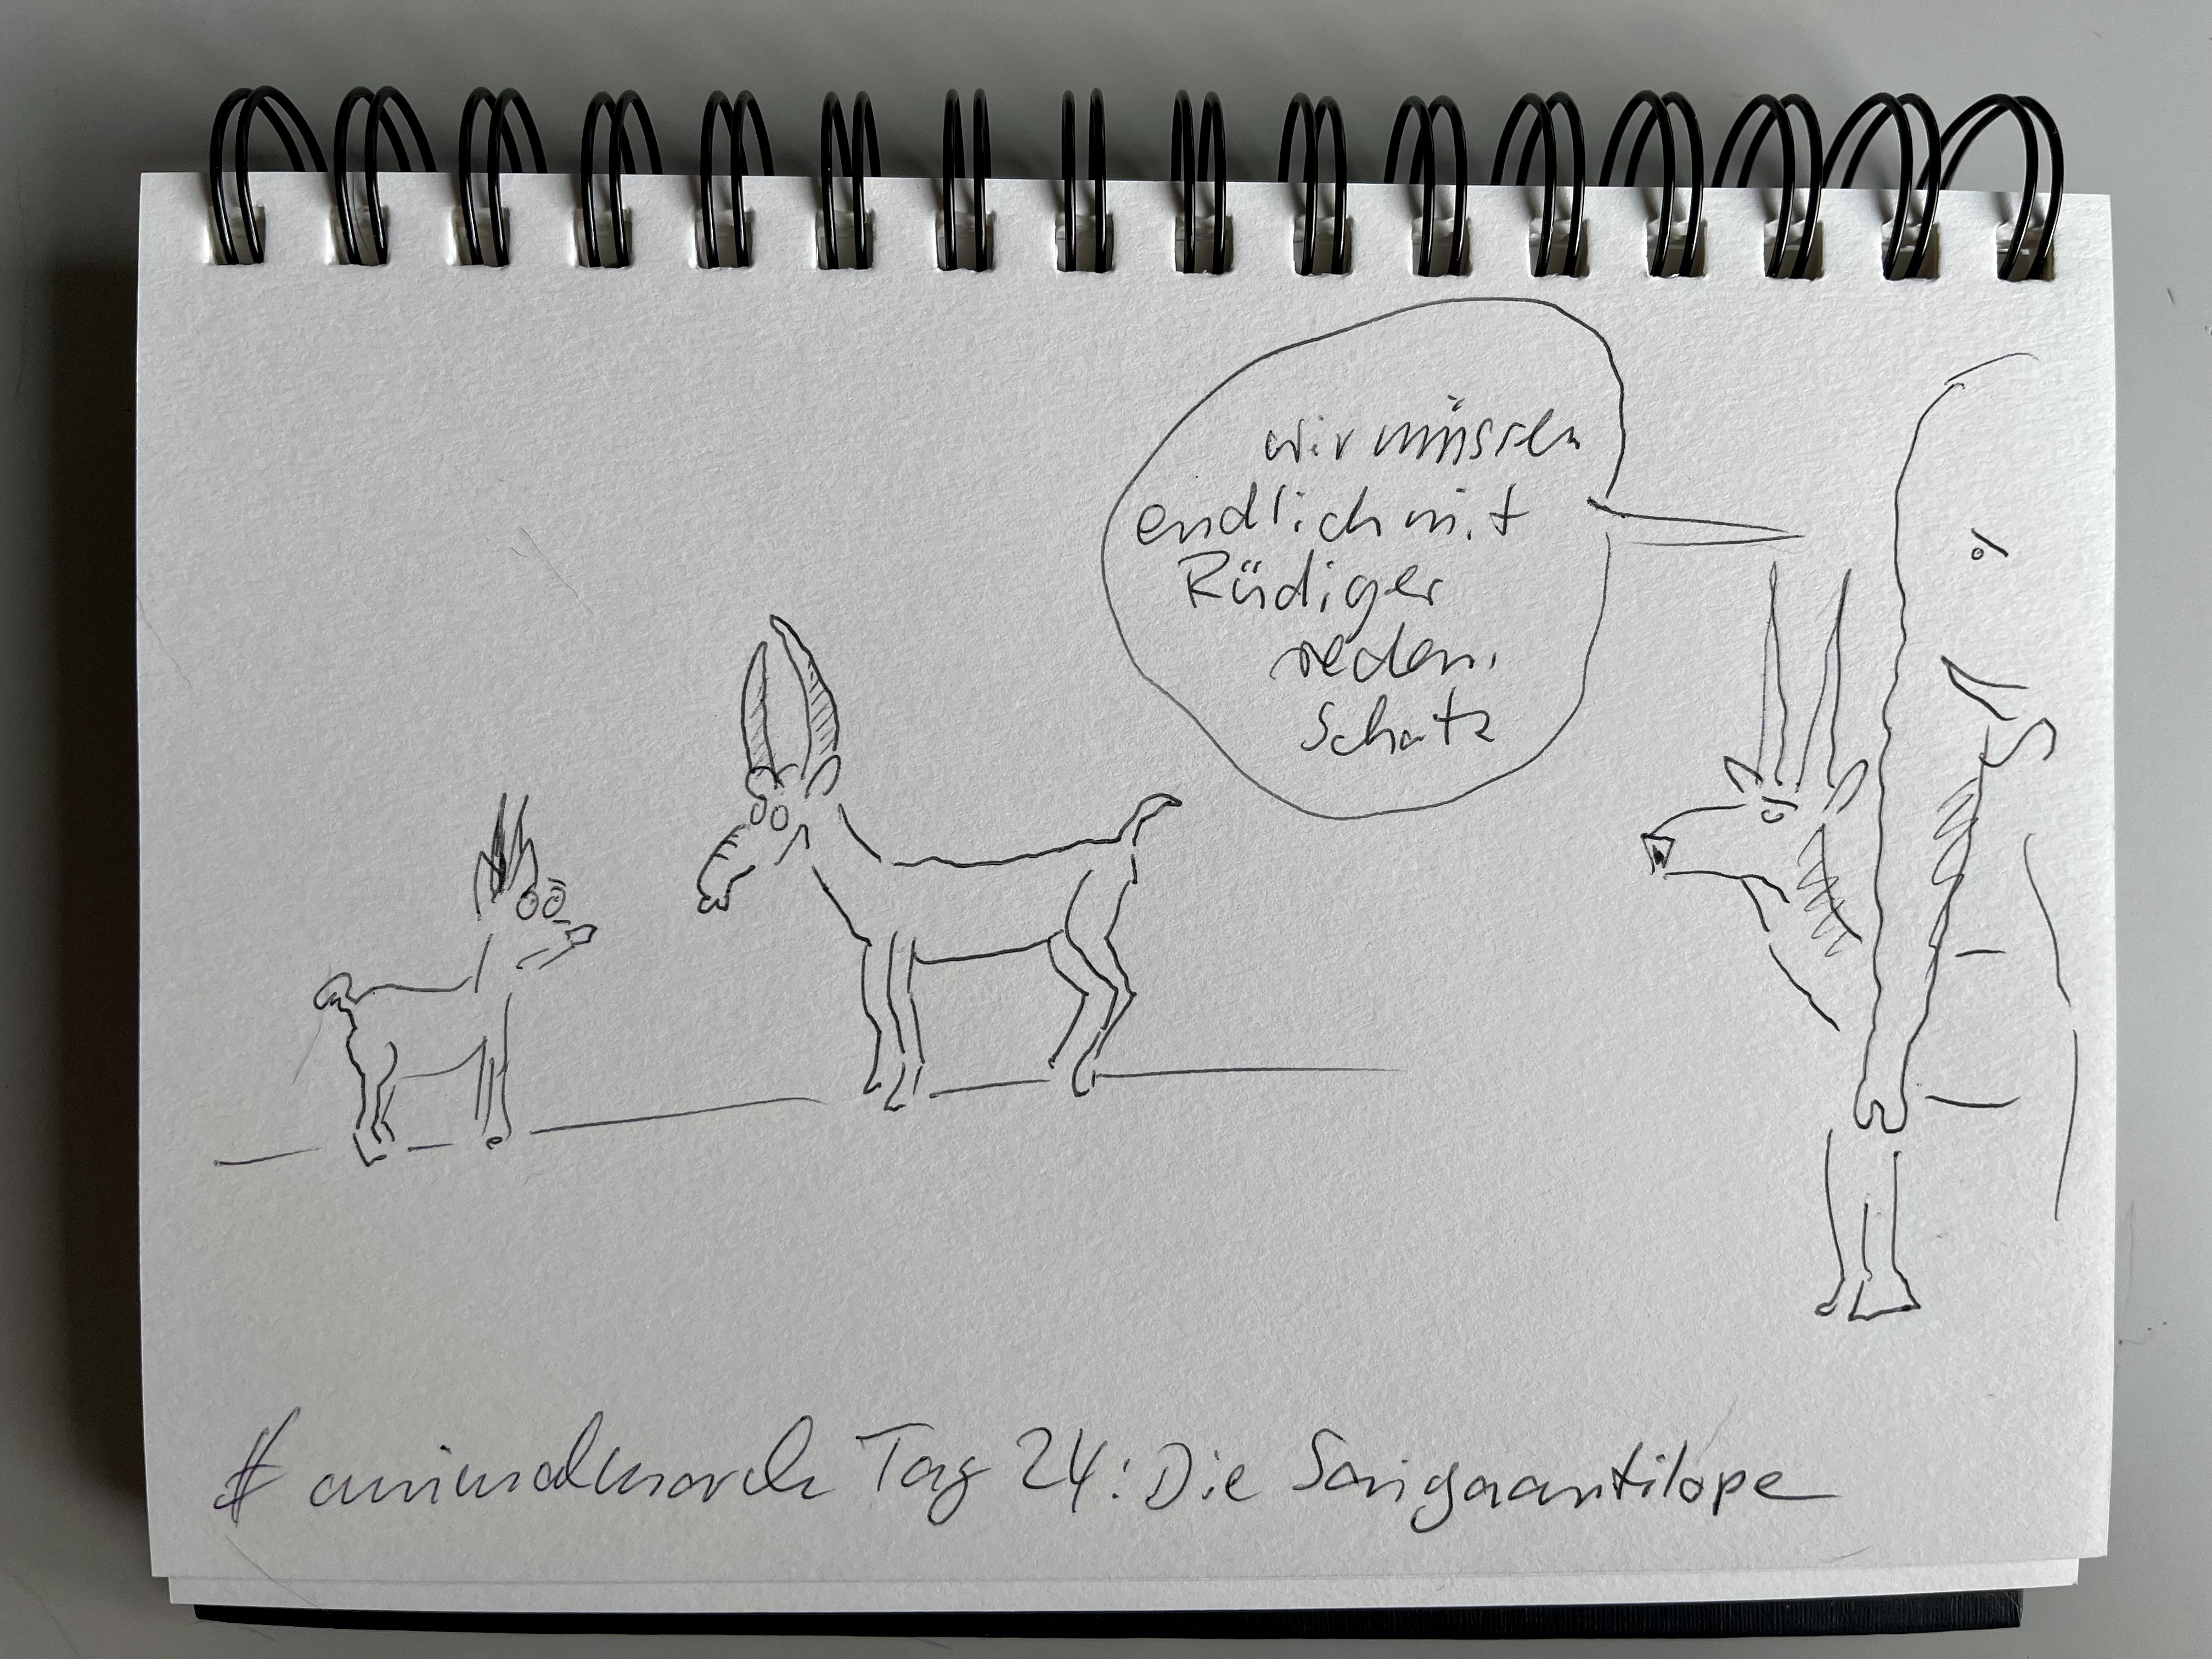 wir müssen
endlich mit
Rüdiger
reden,
Schatz
# animalmarch Tag 24: Die Saigaantilope